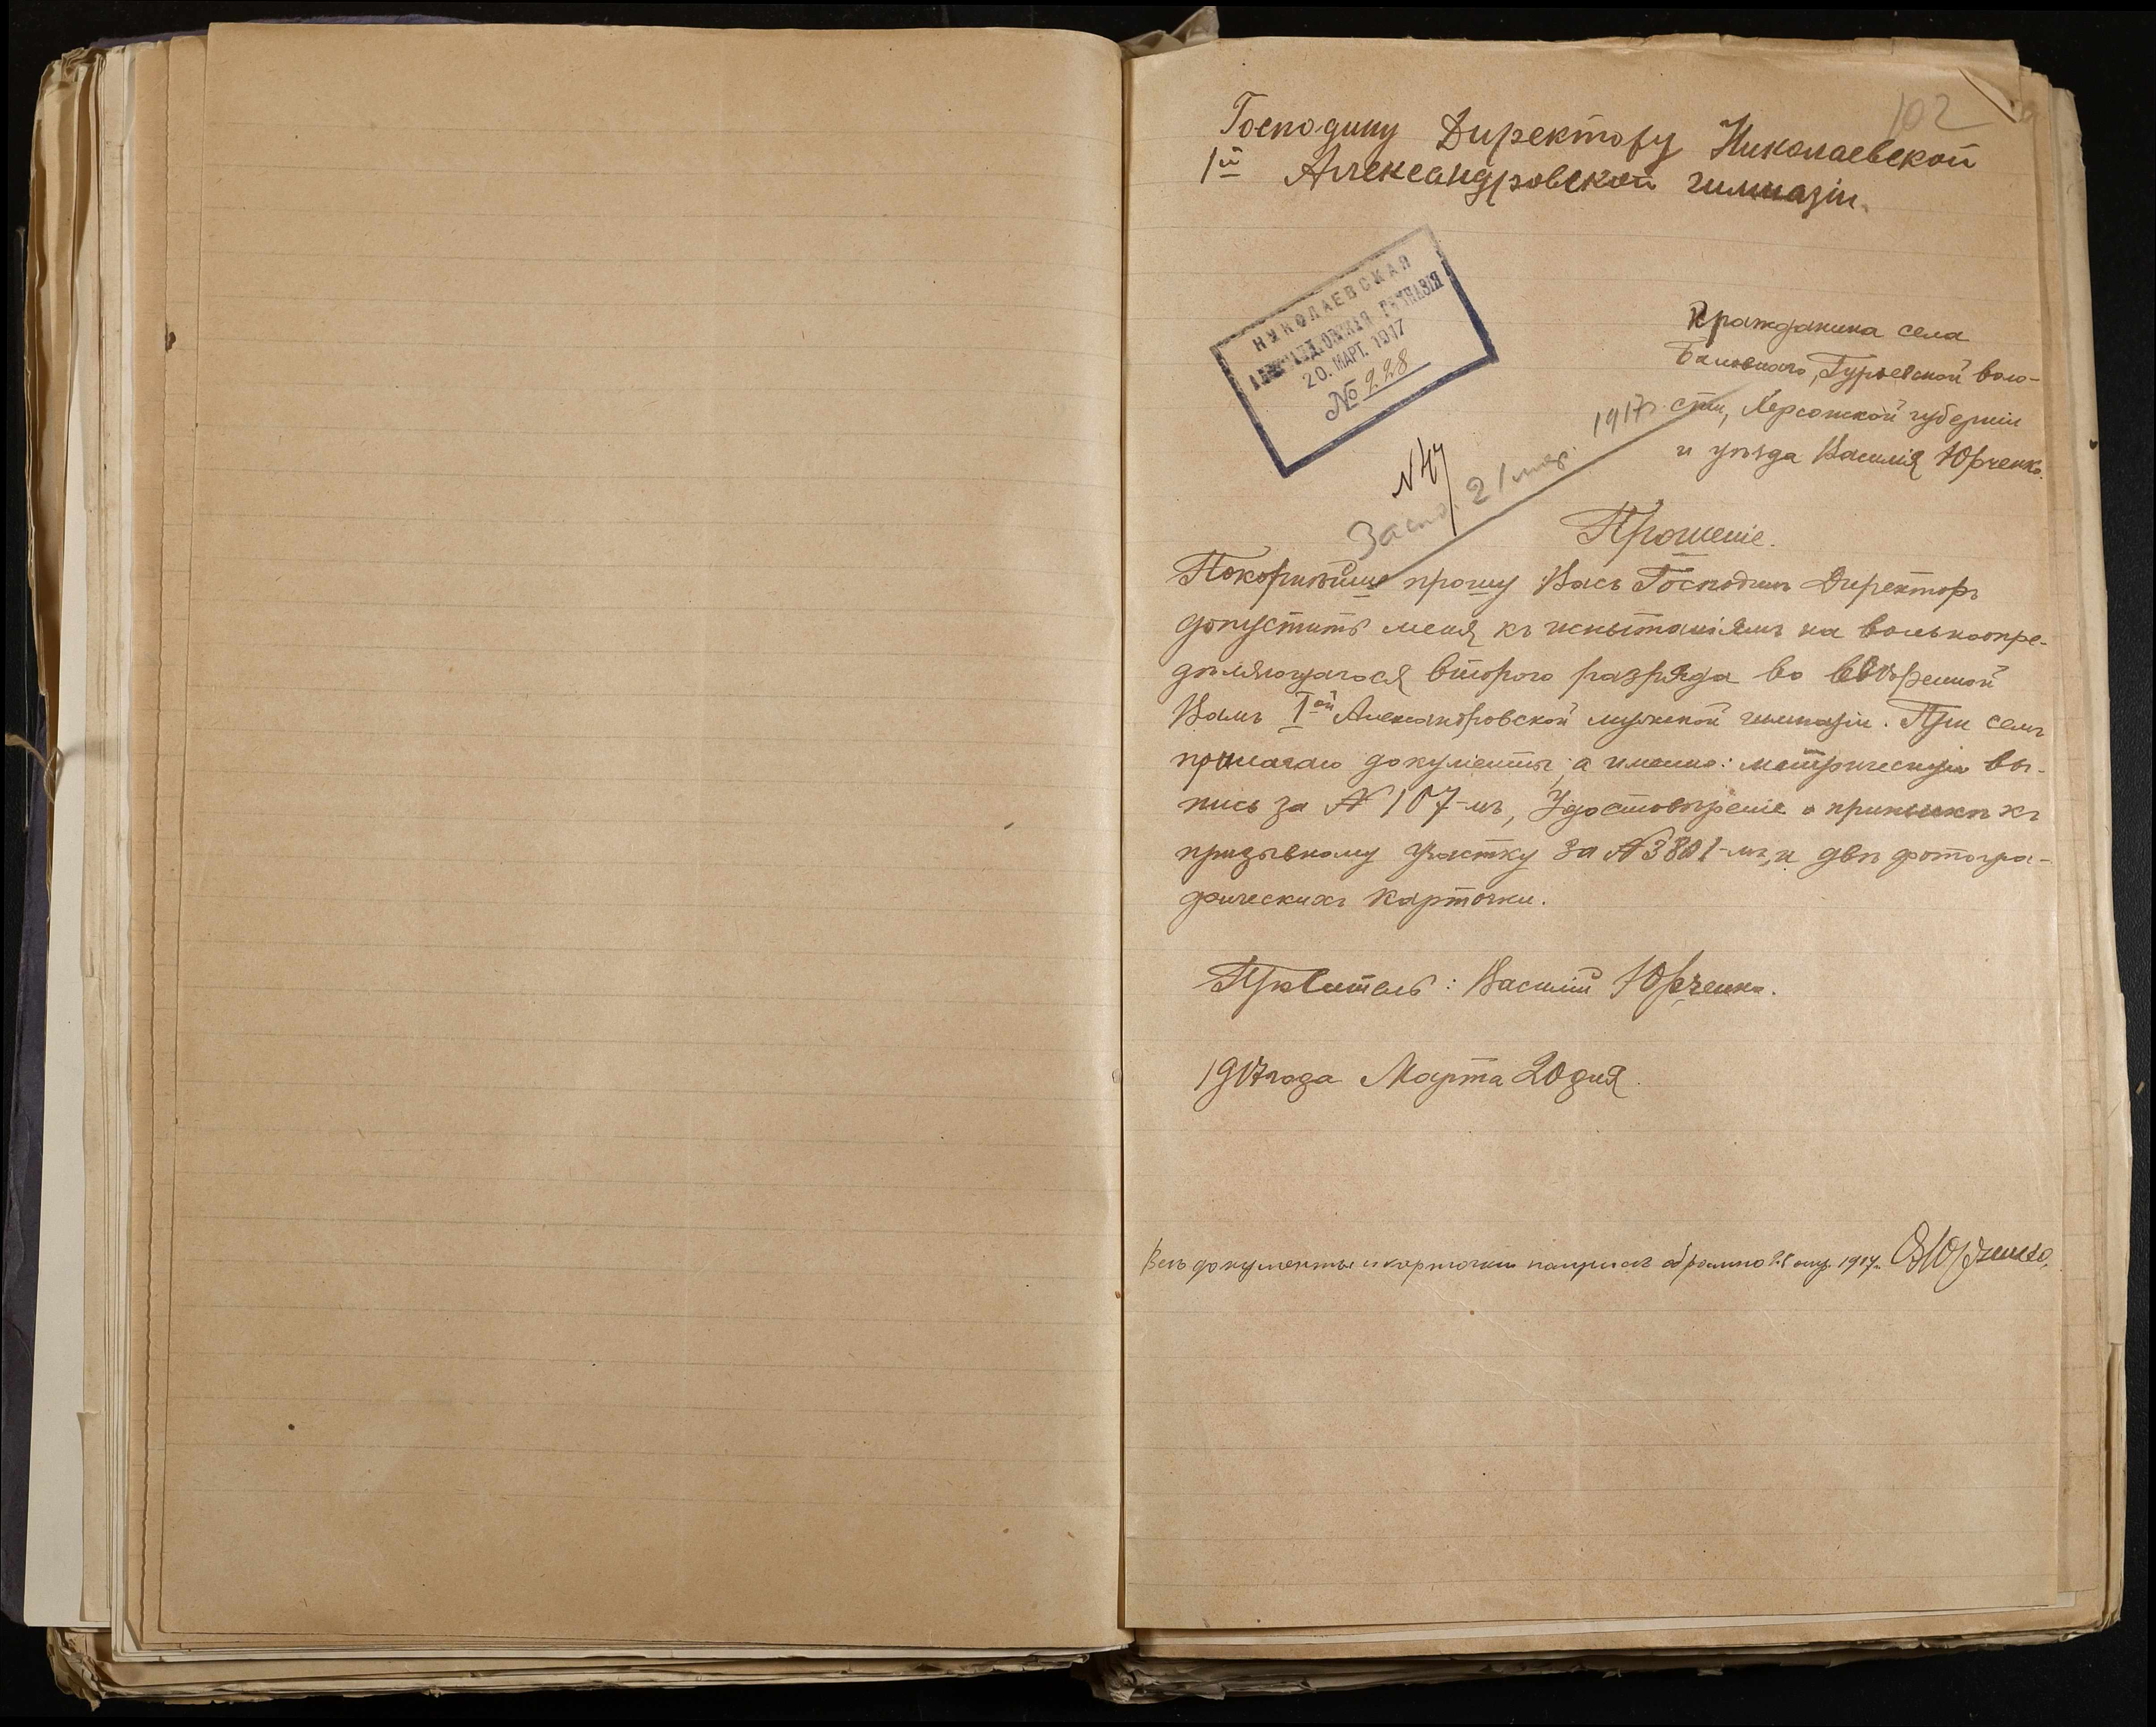 102
Господину Директору Николаевской
1й Александровской гимназіи.
НИКОЛАЕВСКАЯ
АЛЕКСАНДРОВСКАЯ ГИМНАЗІЯ
20. МАРТ. 1917
№ 228
Гражданина села
Баловнаго, Гурьевской воло-
сти, Херсонской губерніи
и уѣзда Василія Юрченко.
21 мар. 1917
Прошеніе.
Покорнѣйше прошу Васъ Господинъ Директоръ
допустить меня къ испытаніямъ на вольноопре-
дѣляющагося второго разряда во ввѣренной
Вамъ Iой Александровской мужской гимназіи. При семъ
прилагаю документы, а именно: метрическую вы-
пись за № 107-мъ, Удостовѣреніе о припискѣ къ
призывному участку за № 3801-мъ, и двѣ фотогра-
фическихъ карточки.
Проситель: Василій Юрченко.
1917 года Марта 20 дня.
Всѣ документы и карточки получилъ обратно 1917 г. В Юрченко.